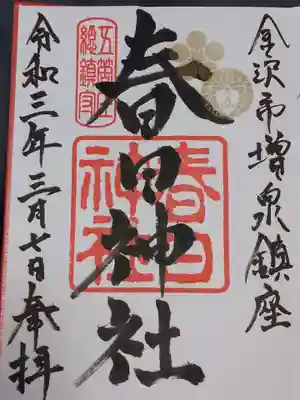 金沢市増泉鎮座
春日神社
春日
神社
五箇庄
総鎮守
令和三年三月七日奉拝